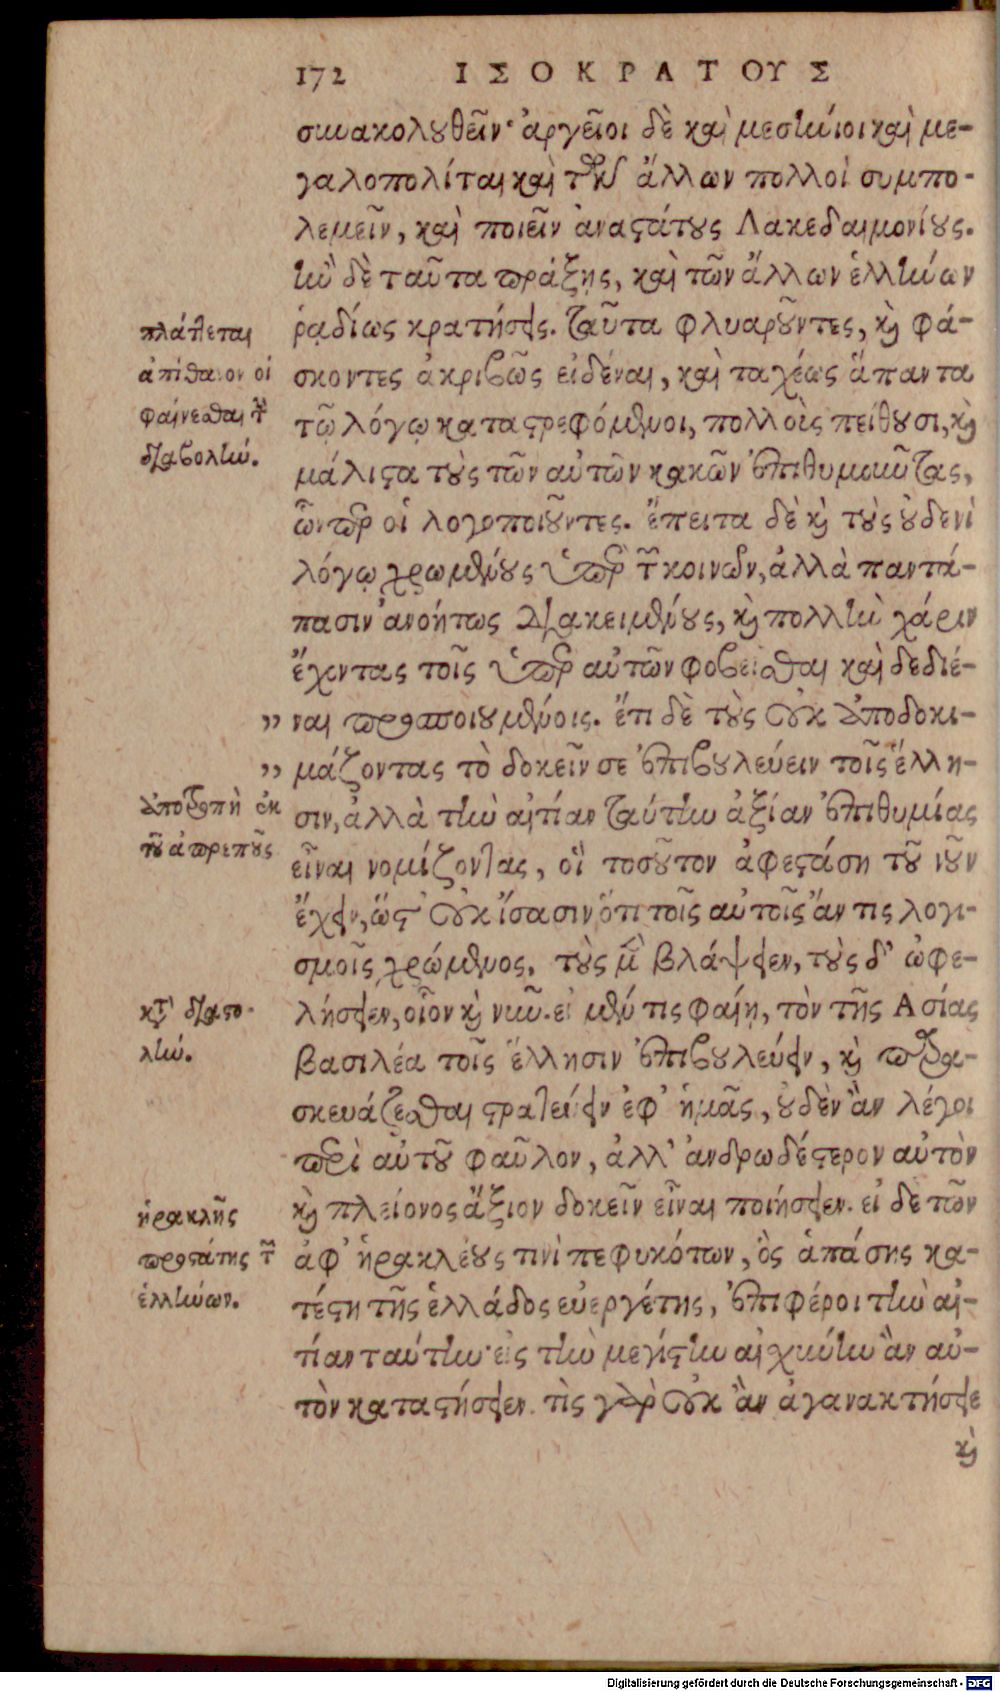 172 ΙΣΟΚΡΑΤΟΥΣ
συνακολουθεῖν· ἀργεῖοι δὲ καὶ μεσήνιοι καὶ με-
γαλοπολίται καὶ τῶν ἄλλων πολλοὶ συμπο-
λεμεῖν, καὶ ποιεῖν ἀναστάτους Λακεδαιμονίους.
ἢν δὲ ταῦτα πράξῃς, καὶ τῶν ἄλλων ἑλλήνων
ῥᾳδίως κρατήσεις. ταῦτα φλυαροῦντες, καὶ φά-
σκοντες ἀκριβῶς εἰδέναι, καὶ ταχέως ἅπαντα
τῷ λόγῳ καταστρεφόμενοι, πολλοὺς πείθουσι, καὶ
μάλιστα τοὺς τῶν αὐτῶν κακῶν ἐπιθυμοῦντας,
ὧνπερ οἱ λογοποιοῦντες. ἔπειτα δὲ καὶ τοὺς οὐδενὶ
λόγῳ χρωμένους ὑπὲρ τῶν κοινῶν, ἀλλὰ παντά-
πασιν ἀνοήτως διακειμένους, καὶ πολλὴν χάριν
ἔχοντας τοῖς ὑπὲρ αὐτῶν φοβεῖσθαι καὶ δεδιέ-
„ ναι προσποιουμένοις. ἔτι δὲ τοὺς οὐκ ἀποδοκι-
„ μάζοντας τὸ δοκεῖν σε ἐπιβουλεύειν τοῖς ἕλλη-
σιν, ἀλλὰ τὴν αἰτίαν ταύτην ἀξίαν ἐπιθυμίας
εἶναι νομίζοντας, οἳ τοσοῦτον ἀφεστάσι τοῦ νοῦν
ἔχειν, ὥστ' οὐκ ἴσασιν ὅτι τοῖς αὐτοῖς ἄν τις λογι-
σμοῖς χρώμενος, τοὺς μὲν βλάψειεν, τοὺς δ' ὠφε-
λήσειεν, οἷον καὶ νῦν. εἰ μέν τις φαίη, τὸν τῆς Ασίας
βασιλέα τοῖς ἕλλησιν ἐπιβουλεύειν, καὶ παρα-
σκευάζεσθαι στρατεύειν ἐφ' ἡμᾶς, οὐδὲν ἂν λέγοι
περὶ αὐτοῦ φαῦλον, ἀλλ' ἀνδρωδέστερον αὐτὸν
καὶ πλείονος ἄξιον δοκεῖν εἶναι ποιήσειεν. εἰ δὲ τῶν
ἀφ' ἡρακλέους τινὶ πεφυκότων, ὃς ἁπάσης κα-
τέστη τῆς ἑλλάδος εὐεργέτης, ἐπιφέροι τὴν αἰ-
τίαν ταύτην· εἰς τὴν μεγίστην αἰσχύνην ἂν αὐ-
τὸν καταστήσειεν. τὶς γὰρ οὐκ ἂν ἀγανακτήσειε
καὶ
πλάττεται
ἀπίθανον οἱ
φαίνεσθαι τὴν
διαβολήν.
ἀποτροπὴ ἐκ
τοῦ ἀπρεποῦς
κατ' διαστο-
λήν.
ἡρακλῆς
προστάτης τῶν
ἑλλήνων.
Digitalisierung gefördert durch die Deutsche Forschungsgemeinschaft - DFG